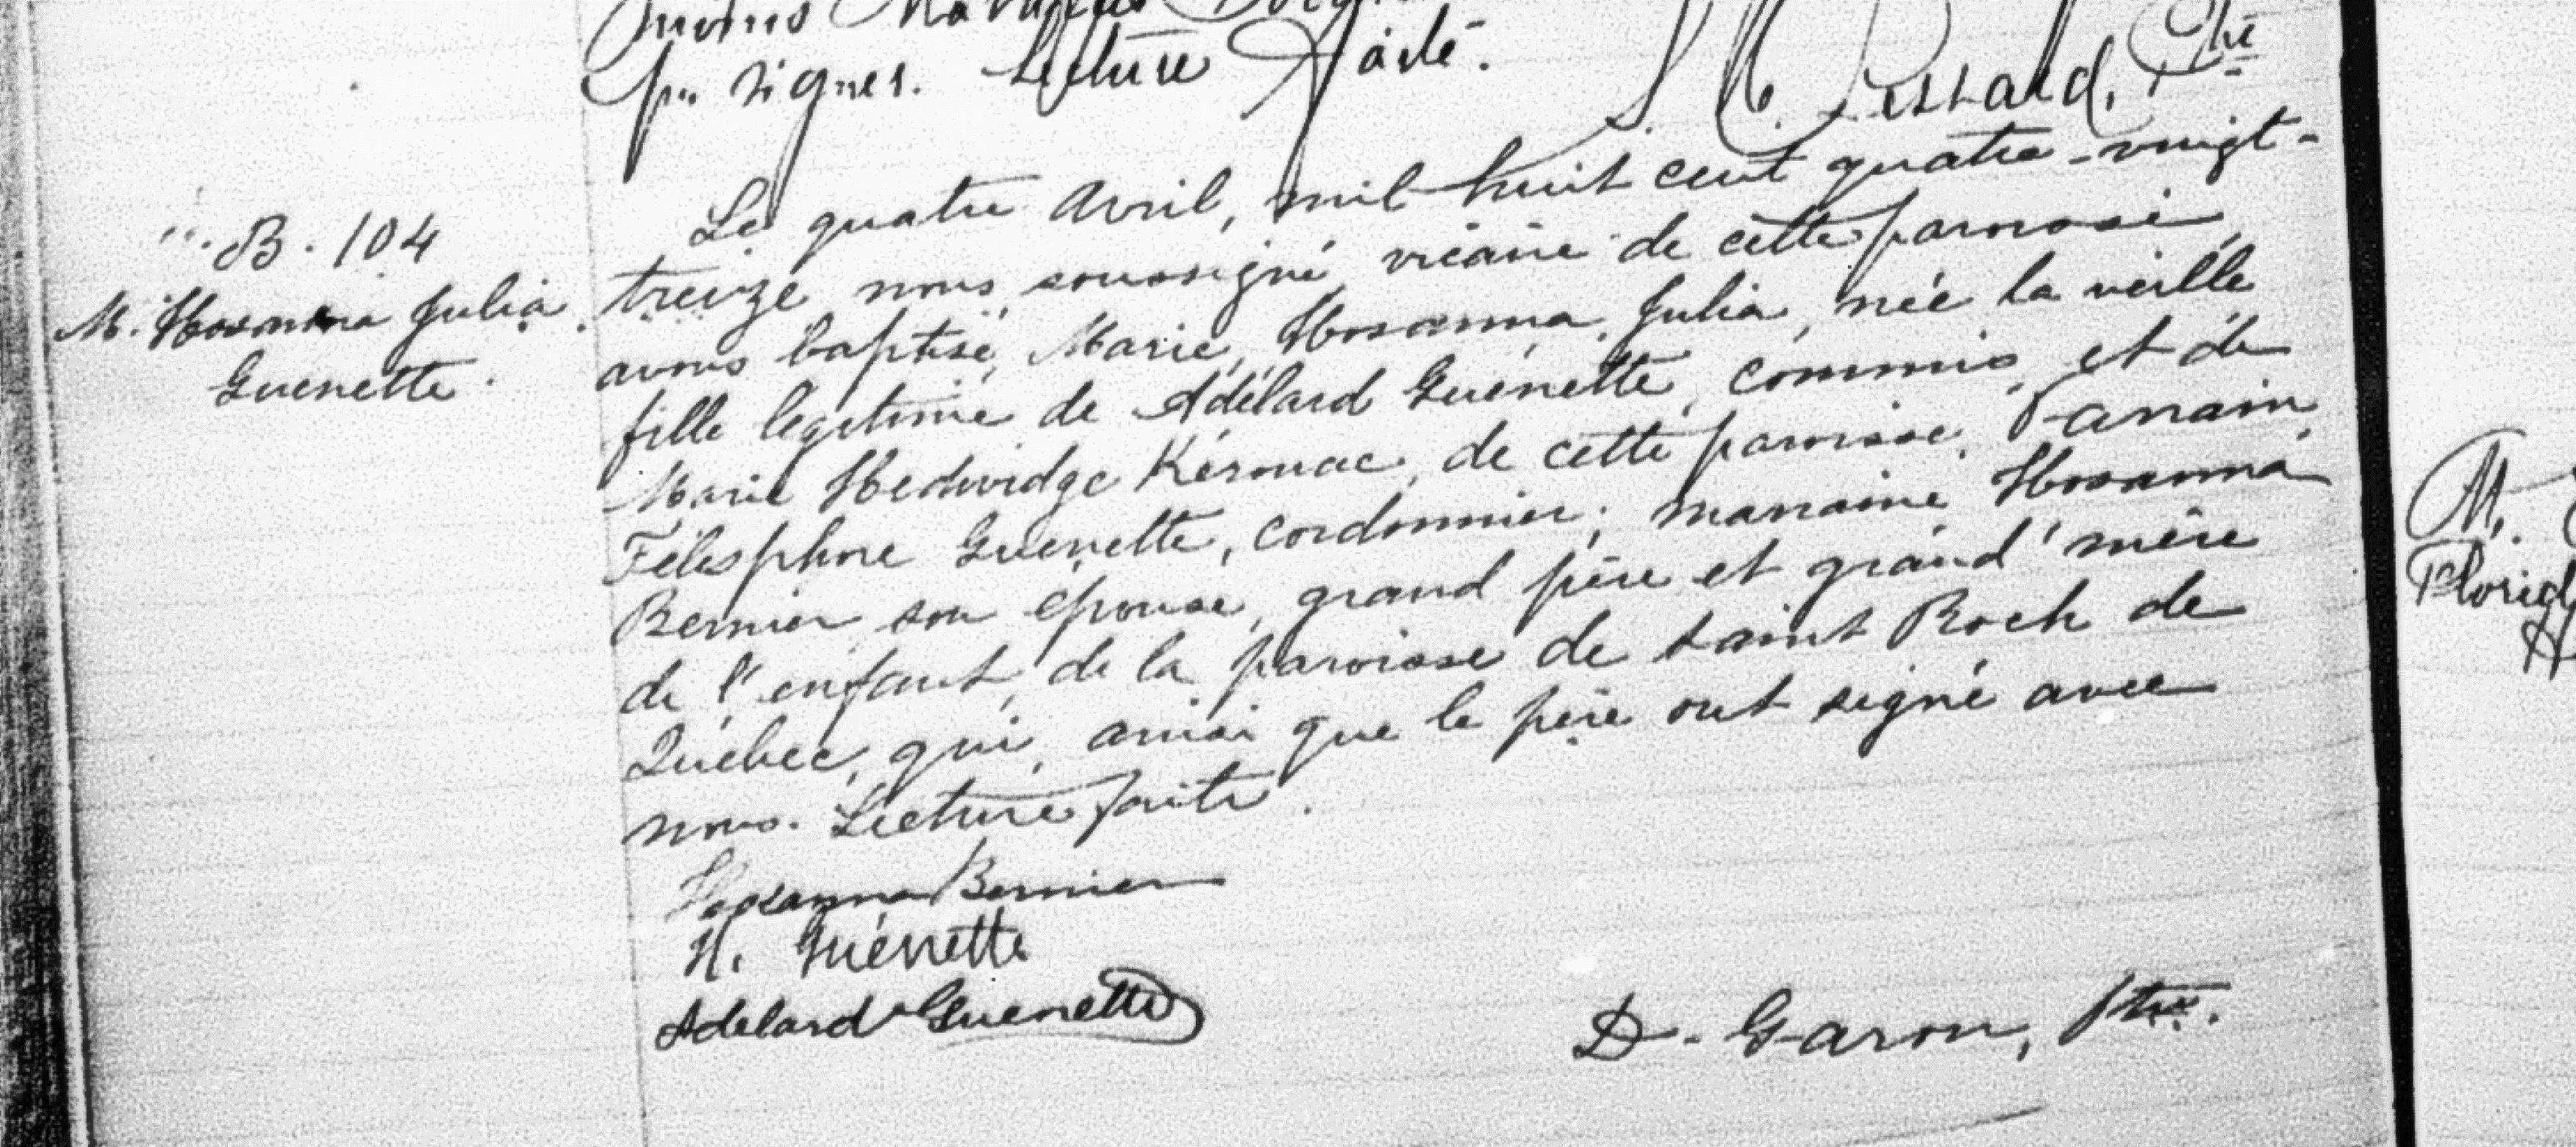 pu signer. Lecture faite.
Ptre
B. 104
M. Hosanna Julia
Guenette.
Le quatre Avril, mil huit cent quatre-vingt-
treize, nous, soussigné, vicaire de cette paroisse,
avons baptisé, Marie, Hosanna, Julia, née la veille
fille légitime de Adélard Guénette, commis, et de
Marie Hedwidge Kérouac, de cette paroisse. Parrain
Télesphore Guenette, cordonnier; marraine Hosanna
Bernier son épouse, grand père et grand'mère
de l'enfant, de la paroisse de saint Roch de
Québec, qui, ainsi que le père ont signé avec
nous. Lecture faite.
Hosanna Bernier
Guénette
Adelard Guenette
D. Garon, Ptre.
M.